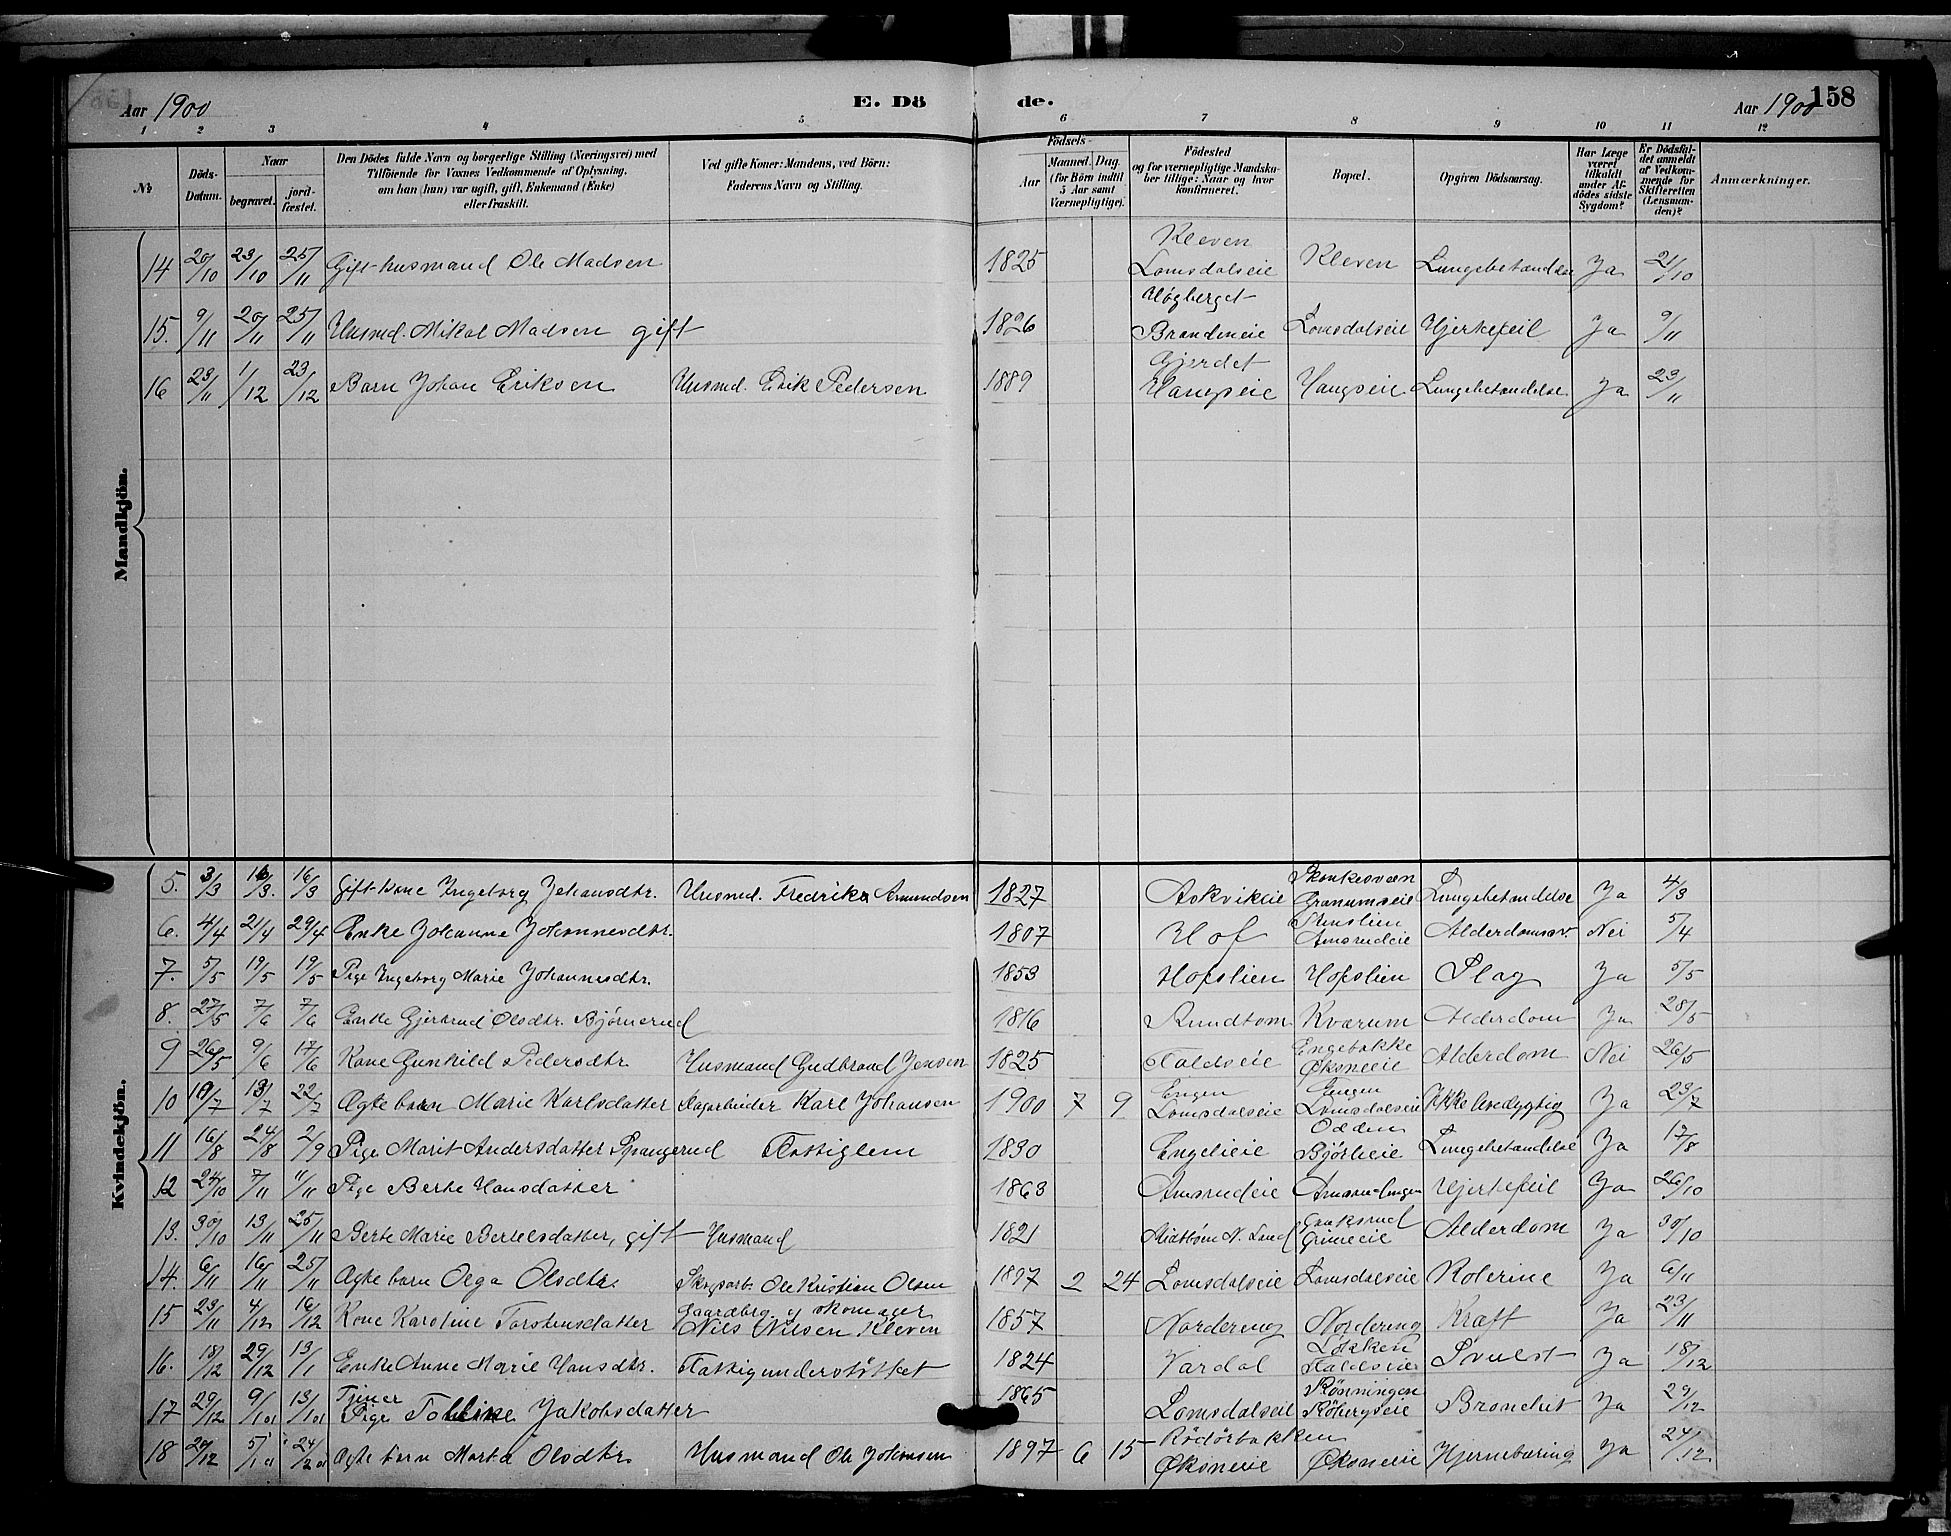 Aar 1900 E. Dö de. Aar 1900 158
1 2 3 4 5 6 7 8 9 10 11 12
No
Döds-Datum.
Naar begravet. jordfæstet.
Den Dödes fulde Navn og borgerlige Stilling (Næringsvei) med
Tilföiende for Voxnes Vedkommende af Oplysning,
om han (hun) var ugift, gift, Enkemand (Enke)
eller fraskilt.
Ved gifte Koner: Mandens, ved Börn:
Faderens Navn og Stilling.
Födsels-
Aar
Maaned. Dag.
(for Börn indtil
5 Aar samt
Værnepligtige).
Födested
og for værnepligtige Mandskaber tillige: Naar og hvor
konfirmeret.
Bopæl.
Opgiven Dödsaarsag.
Har Læge været tilkaldt under Afdödes sidste Sygdom?
Er Dödsfaldet anmeldt af Vedkommende for Skifteretten (Lensmanden)?
Anmærkninger.
Mandkjön.
14 20/10 23/10 25/11 Gift husmand Ole Madsen 1825 Kleven Lomsdalseie Kleven Lungebetændelse Ja 21/10
15. 9/11 20/11 25/11 Husmd. Mikal Madsen gift 1826 Høgberget Brandneie Lomsdalseie Hjertefeil Ja 9/11
16 23/11 1/12 23/12 Barn Johan Eriksen Husmd. Erik Pedersen 1889 Gjerdet Haugseie Haugseie Lungebetændelse Ja 23/11
Kvindekjön.
5. 3/3 16/3. 16/3 Gift kone Ingeborg Johansdtr. Husmd. Fredrik Amundsen 1827 Askvikeie Granumseie Lungebetændelse Ja 4/3
6. 4/4 21/4 29/4 Enke Johanne Johannesdtr. 1807 Hof Stenslien Amsrudeie Alderdomssv. Nei 5/4
7. 5/5 19/5 19/5 Pige Ingeborg Marie Johannesdtr. 1853 Hofslien Hofslien Slag Ja 5/5
8. 27/5 7/6 7/6 Enke Gjertrud Olsdtr. Bjørnerud 1816 Rundtom Kværum Alderdom Ja 28/5
9 26/5 9/6 17/6 Kone Gunhild Pedersdtr. Husmand Gudbrand Jensen 1825 Faldseie Engebakke Øksneeie Alderdom Nei 26/5
10 10/7 13/7 22/7 Ægte barn Marie Karlsdatter Dagarbeider Karl Johansen 1900 7 9 Engen Lomsdalseie Engen Lomsdalseie Ikke livsdygtig Ja 23/7
11 16/8 24/8 2/9 Pige Marit Andersdatter Spangerud Fattiglem 1830 Engelieie Odden Bjørlieie Lungebetændelse Ja 17/8
12 24/10 7/11 11/11 Pige Berte Hansdatter 1863 Amsrudeie Hjertefeil Ja 26/10
13. 30/10 13/11 25/11 Berte Marie Bertelsdatter, gift Husmand 1821 N. Land Grimeeie Alderdom Ja 30/10
14. 6/11 16/11 25/11 Ægte barn Olga Olsdtr. Skogsarb. Ole Kristian Olsen 1897 2 24 Lomsdalseie Lomsdalseie Kolerine Ja 6/11
15 23/11 4/12 16/12 Kone Karoline Torstensdatter Gaardbrg. og skomager Nils Nilsen Kleven 1857 Nordering Nordering Kræft Ja 23/11
16. 18/12 29/12 13/1 Enke Anne Marie Hansdtr. Fattigunderstøttet 1824 Vardal Løkken Faldseie Svulst Ja 18/12
17 29/12 9/1 01 13/1 01 Tjener Pige Jakobsdatter 1865 Lomsdalseie Rønningen Røbergseie Bronchit Ja 29/12
18 20/12 5/1 01 24/2 01 Ægte barn Marta Olsdtr. Husmand Ole Johansen 1897 6 15 Øksneeie Øksneeie Hjernebæring Ja 24/12